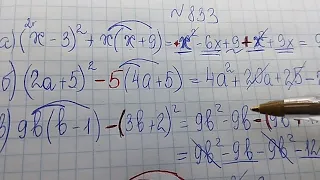 № 833
а) (x - 3)² + x(x + 9) = x² - 6x + 9 + x² + 9x = 9
б) (2a + 5)² - 5(4a + 5) = 4a² + 20a + 25 - 2
в) 9b(b - 1) - (3b + 2)² = 9b² - 9b - (9b
= 9b² - 9b - 9b² - 12